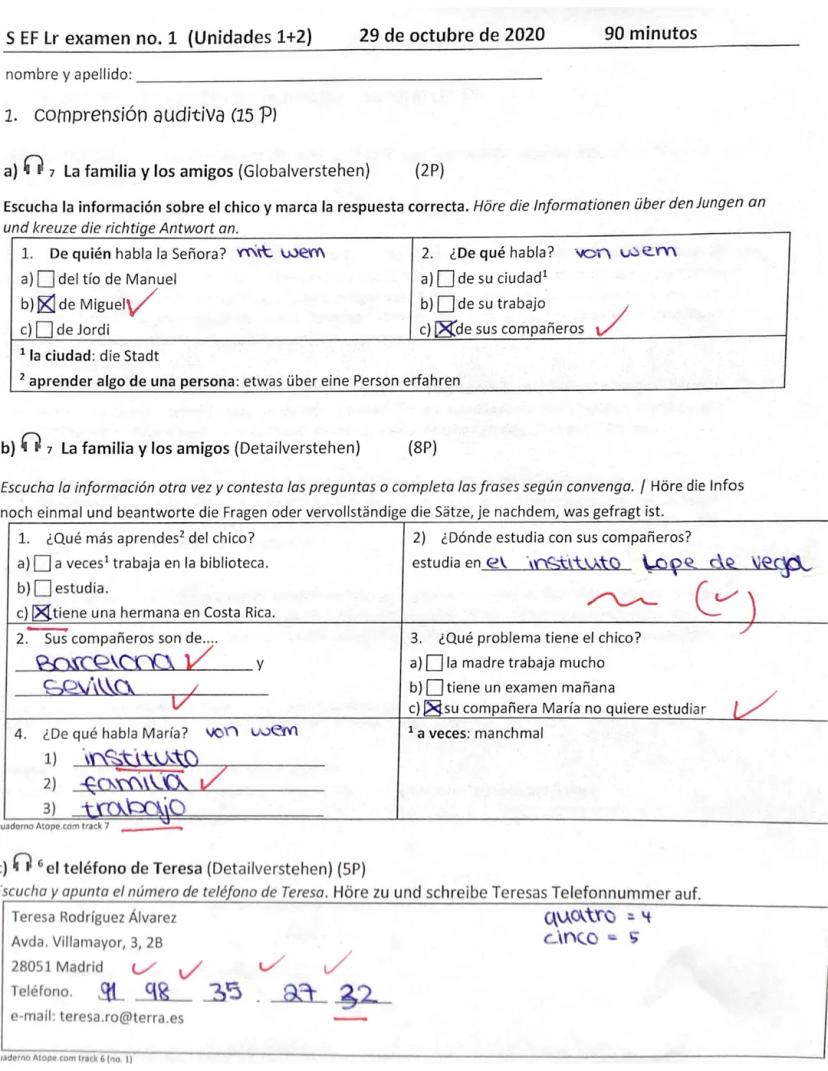 S EF Lr examen no. 1 (Unidades 1+2) 29 de octubre de 2020 90 minutos
nombre y apellido:
1. comprensión auditiva (15 P)
a) 7 La familia y los amigos (Globalverstehen) (2P)
Escucha la información sobre el chico y marca la respuesta correcta. Höre die Informationen über den Jungen an
und kreuze die richtige Antwort an.
1. De quién habla la Señora? mit wem
a) del tío de Manuel
b) de Miguel
c) de Jordi
2. ¿De qué habla? von wem
a) de su ciudad¹
b) de su trabajo
c) de sus compañeros
¹ la ciudad: die Stadt
² aprender algo de una persona: etwas über eine Person erfahren
b) 7 La familia y los amigos (Detailverstehen) (8P)
Escucha la información otra vez y contesta las preguntas o completa las frases según convenga. / Höre die Infos
noch einmal und beantworte die Fragen oder vervollständige die Sätze, je nachdem, was gefragt ist.
1. ¿Qué más aprendes² del chico?
a) a veces¹ trabaja en la biblioteca.
b) estudia.
c) tiene una hermana en Costa Rica.
2) ¿Dónde estudia con sus compañeros?
estudia en el instituto Lope de vega
2. Sus compañeros son de....
Barcelona y
Sevilla
3. ¿Qué problema tiene el chico?
a) la madre trabaja mucho
b) tiene un examen mañana
c) su compañera María no quiere estudiar
4. ¿De qué habla María? von wem
1) instituto
2) familia
3) trabajo
¹ a veces: manchmal
uaderno Atope.com track 7
:) 6 el teléfono de Teresa (Detailverstehen) (5P)
Escucha y apunta el número de teléfono de Teresa. Höre zu und schreibe Teresas Telefonnummer auf.
Teresa Rodríguez Álvarez
Avda. Villamayor, 3, 2B
28051 Madrid
Teléfono. 91 98 35 . 27 32
e-mail: teresa.ro@terra.es
quatro = 4
cinco = 5
uaderno Atope.com track 6 (no. 1)